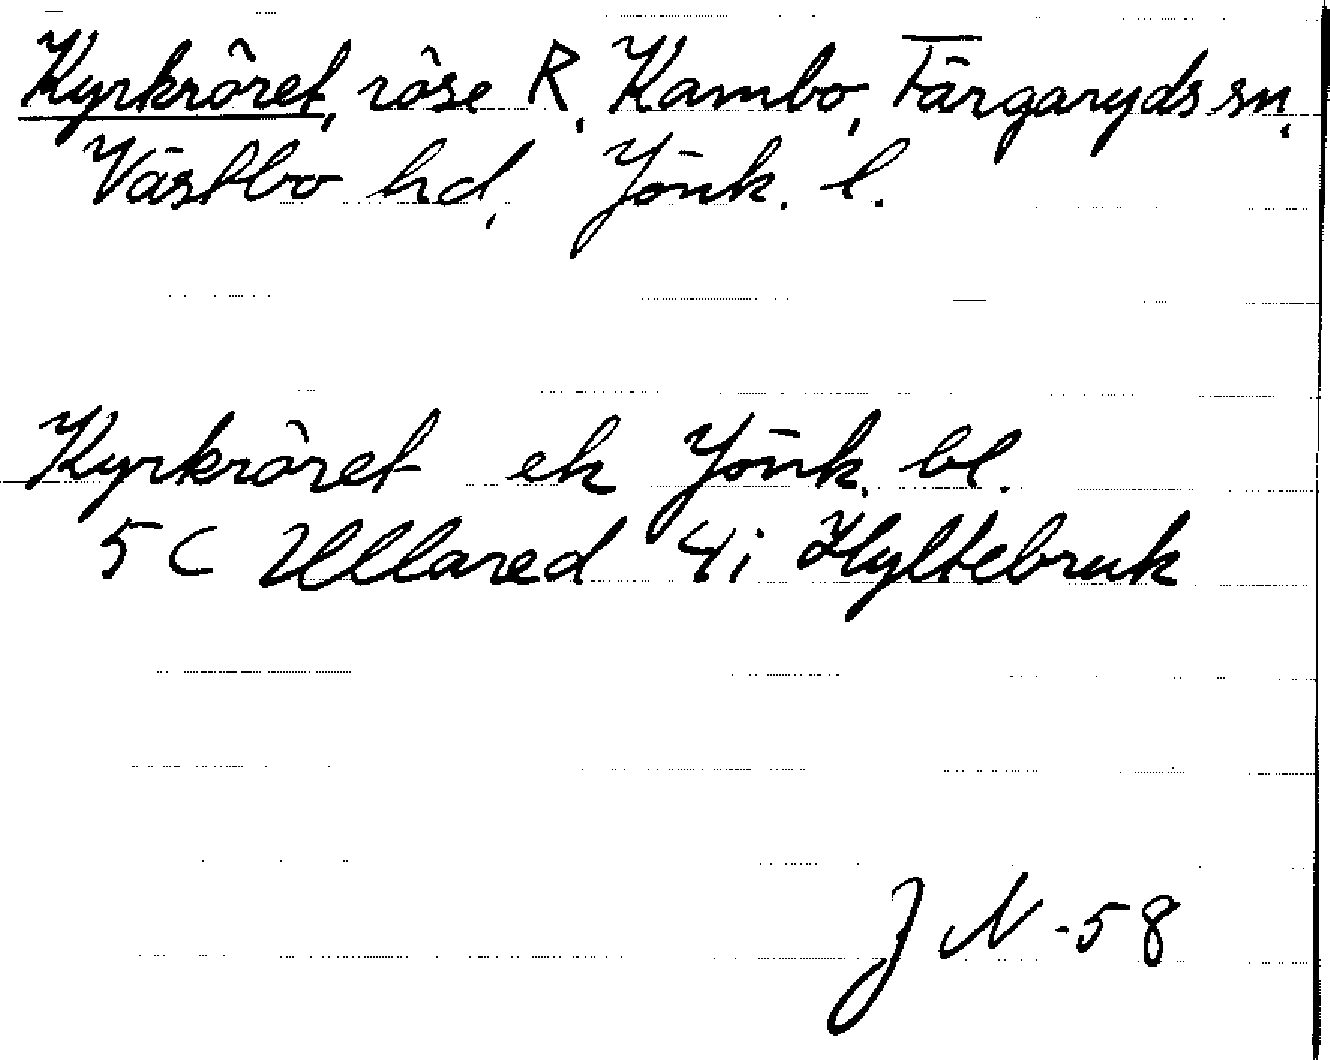 Kyrkröret, röse R, Kambo, Färgaryds sn,
Västbo hd, Jönk. l.
Kyrkröret ek Jönk. bl.
5 C Ullared 4i Hyltebruk
J N -58